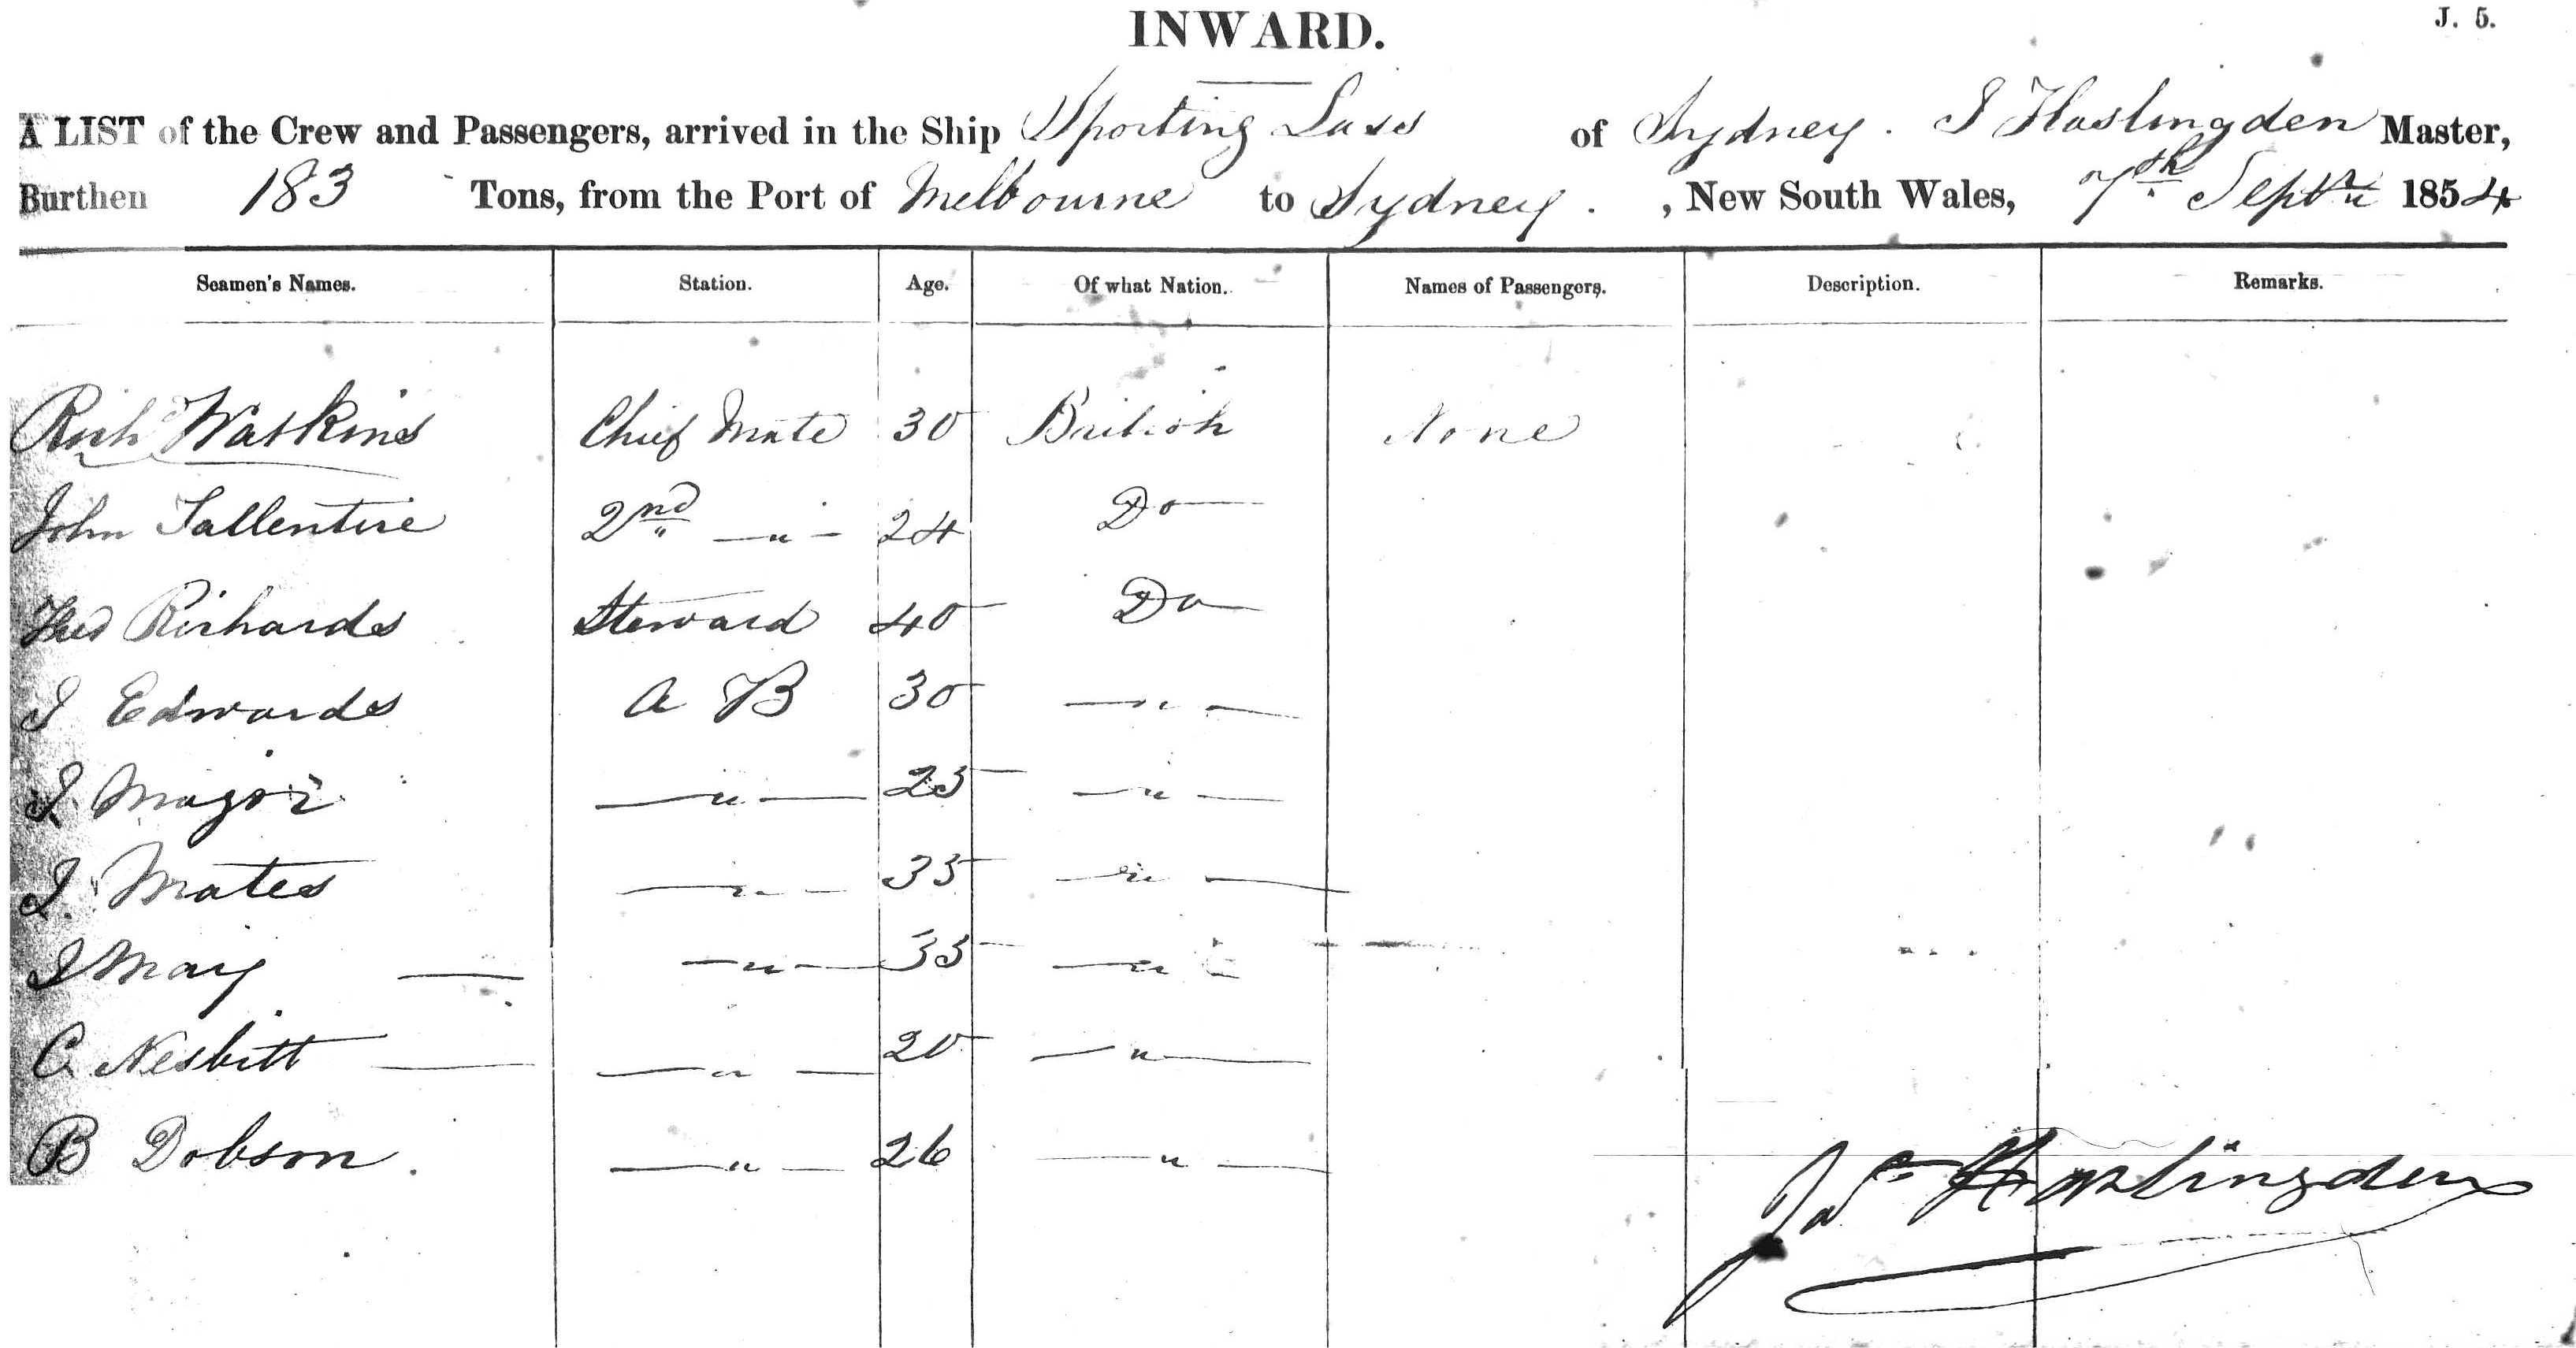 INWARD.
J. 5.
A LIST of the Crew and Passengers, arrived in the Ship Sporting Lass of Sydney. J Haslingden Master,
Burthen 183 Tons, from the Port of Melbourne to Sydney. , New South Wales, 7th Septr 1854
Seamen's Names. Station. Age. Of what Nation. Names of Passengers. Description. Remarks.
Richd Watkins Chief Mate 30 British None
John Tallentire 2nd — " — 24 Do
Thos Richards Steward 40 Do
J Edwards A B 30 — " —
J. Major — " — 25 — " —
J. Mates — " — 35 — " —
J May — " — 35 — " —
C Nesbitt — " — 20 — " —
B Dobson. — " — 26 — " —
Jas Haslingden